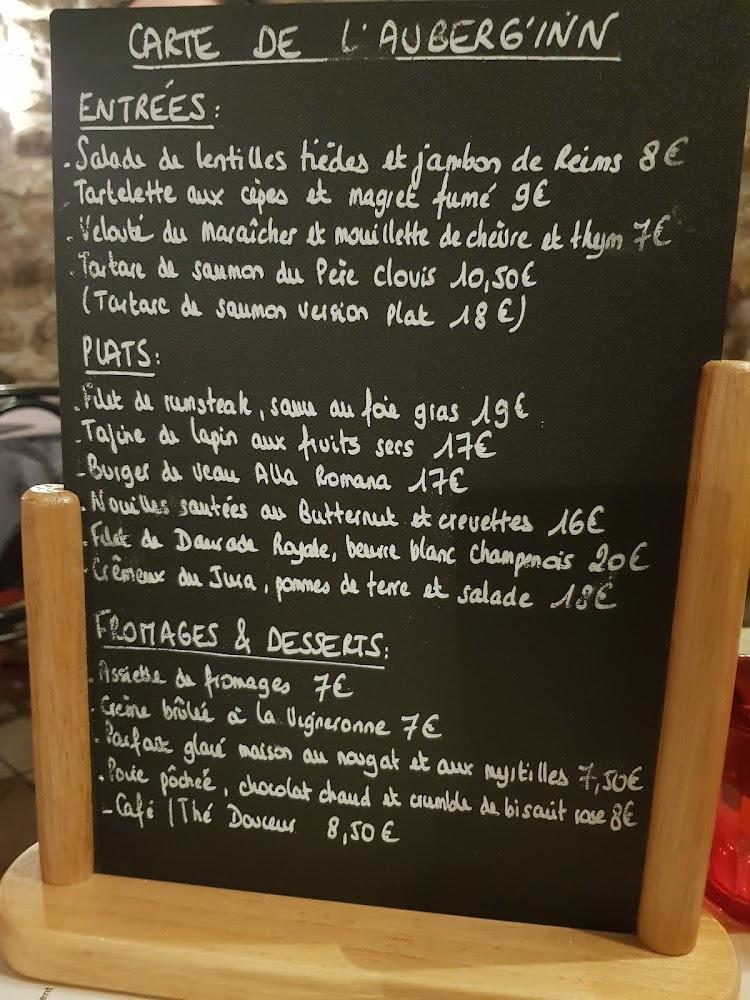 CARTE DE L'AUBERG'INN
ENTRÉES:
. Salade de lentilles tièdes et jambon de Reims 8€
. Tartelette aux cèpes et magret fumé 9€
. Velouté du maraîcher et mouillette de chèvre et thym 7€
. Tartare de saumon du Père Clovis 10,50€
(Tartare de saumon version plat 18€)
PLATS:
. Filet de rumsteak, sauce au foie gras 19€
. Tajine de lapin aux fruits secs 17€
- Burger de veau Alla Romana 17€
. Nouilles sautées au Butternut et crevettes 16€
. Filet de Daurade Royale, beurre blanc champenois 20€
. Crêmeux du Jura, pommes de terre et salade 18€
FROMAGES & DESSERTS:
. Assiette de fromages 7€
. Crème brûlée à la Vigneronne 7€
. Parfait glacé maison au nougat et aux myrtilles 7,50€
. Poire pôchée, chocolat chaud et crumble de biscuit rose 8€
- Café / Thé Douceur 8,50€
ent